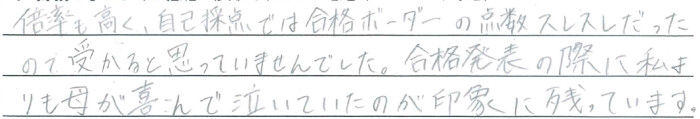 倍率も高く、自己採点では合格ボーダーの点数スレスレだった
ので受かると思っていませんでした。合格発表の際に私よ
りも母が喜んで泣いていたのが印象に残っています。